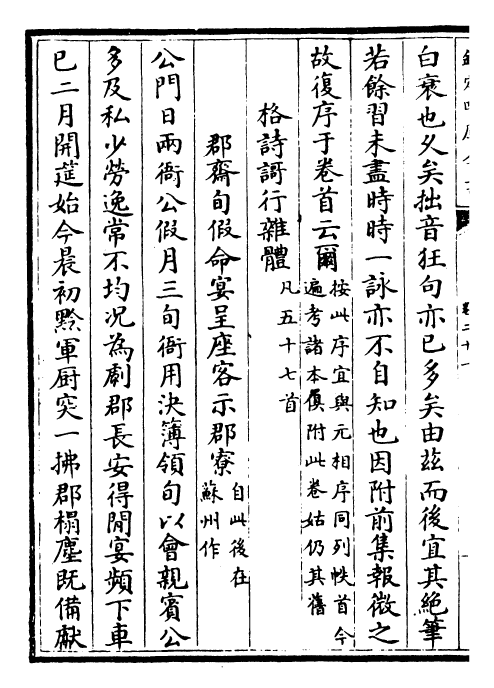 白衰也久矣拙音狂句亦已多矣由茲而後宜其絶筆
若餘習未盡時時一詠亦不自知也因附前集報微之
故復序于卷首云爾
按此序宜與元相序同列帙首今
遍考諸本俱附此卷姑仍其舊
格詩謌行雜體
凡五十七首
郡齋旬假命宴呈座客示郡寮
自此後在
蘇州作
公門日兩衙公假月三旬衙用決簿領旬以會親賓公
多及私少勞逸常不均况為劇郡長安得閒宴頻下車
已二月開筵始今晨初黔軍厨突一拂郡榻塵既備獻